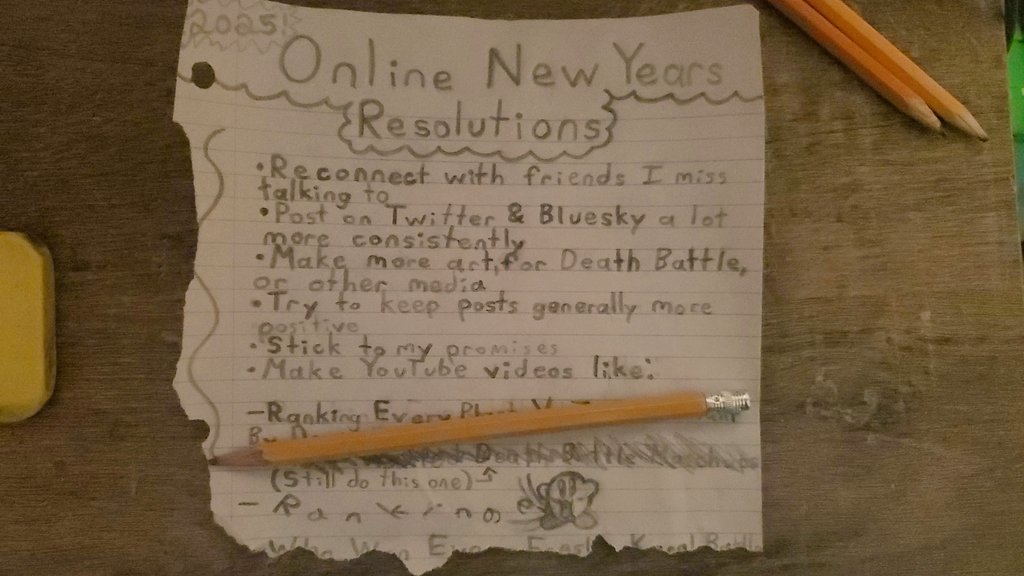 2025!
Online New Years
Resolutions
•Reconnect with friends I miss
talking to
•Post on Twitter & Bluesky a lot
more consistently
•Make more art, for Death Battle,
or other media
•Try to keep posts generally more
positive
•Stick to my promises
•Make YouTube videos like:
-Ranking Every
By
Death Battle
(Still do this one)
- Ranking
Who Won Every